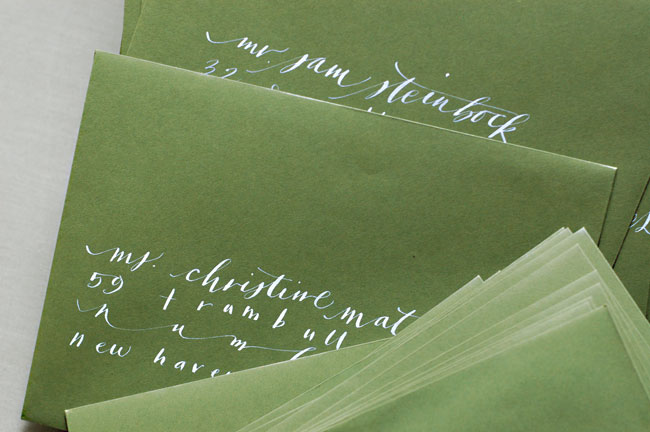 mr. sam steinbock
ms. christine mat
59 trumbull
new haven